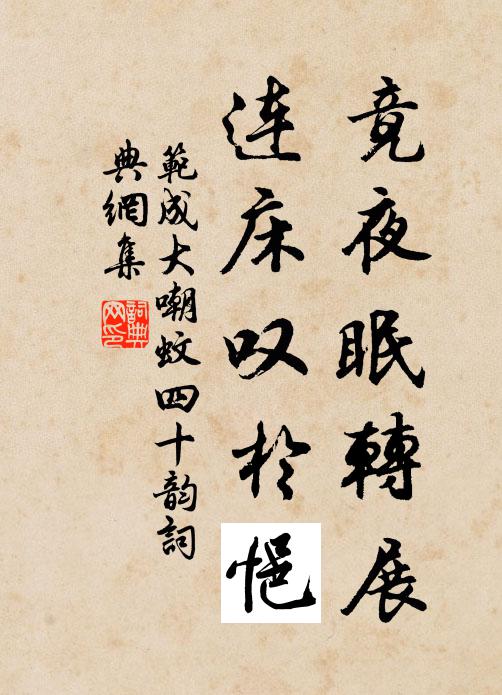 竞夜眠轉展
连床叹於悒
範成大嘲蚊四十韵詞
典網集
詞典
网印